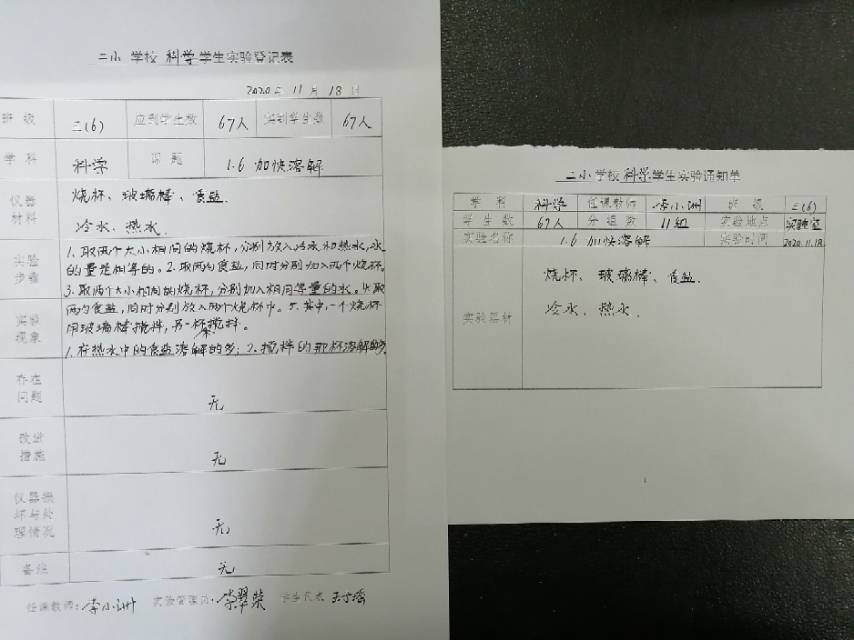 二小 学校 科学 学生实验登记表
2020年 11月 18日
班级 三(6) 应到学生数 67人 实到学生数 67人
学科 科学 课题 1.6 加快溶解
仪器材料 烧杯、玻璃棒、食盐
冷水、热水
实验步骤 1.取两个大小相同的烧杯,分别放入冷水和热水,水
的量是相等的。2.取两勺食盐,同时分别加入两个烧杯。
3.取两个大小相同的烧杯,分别加入相同等量的水。4.取
两勺食盐,同时分别放入两个烧杯中。5.其中,一个烧杯
用玻璃棒搅拌,另一杯不搅拌。
实验现象 1.在热水中的食盐溶解的多;2.搅拌的那杯溶解
存在问题 无
改进措施 无
仪器损坏与处理情况 无
备注 无
任课教师: 李小洲 实验管理员: 李翠荣 学生代表
二小 学校 科学 学生实验通知单
学科 科学 任课教师 李小洲 班级 三(6)
学生数 67人 分组数 11组 实验地点 实验室
实验名称 1.6 加快溶解 实验时间 2020.11.18
实验器材 烧杯、玻璃棒、食盐
冷水、热水